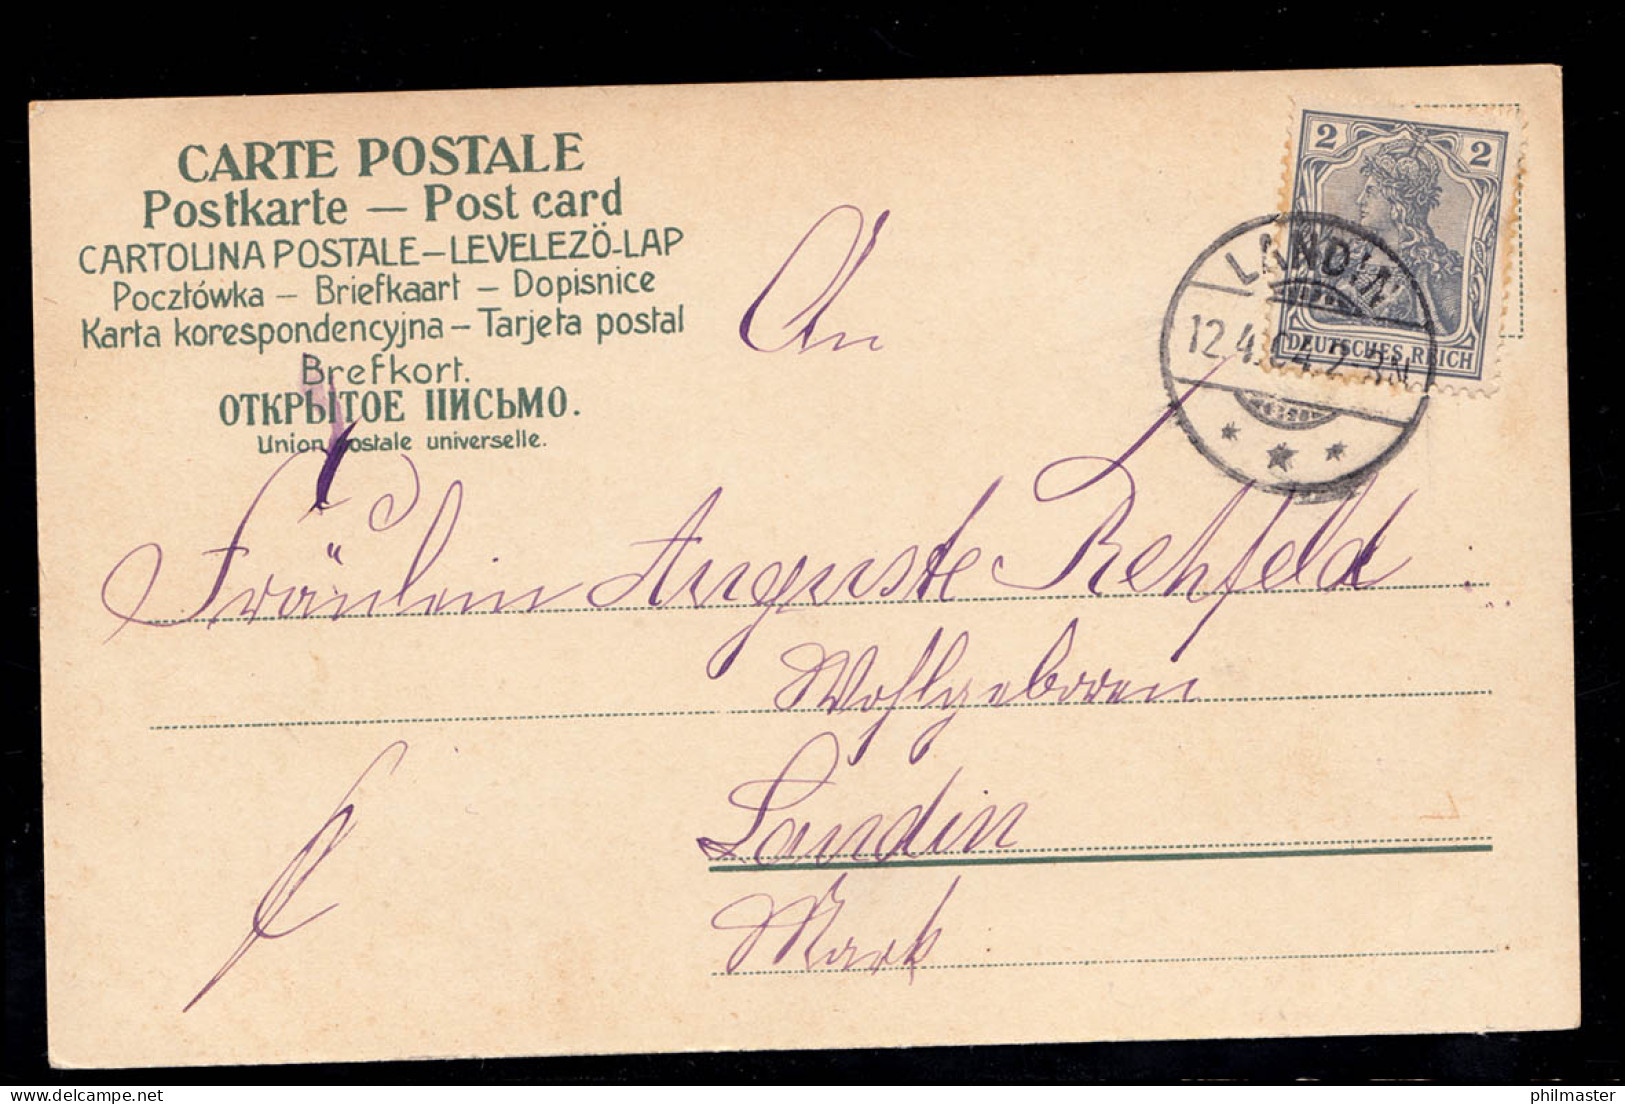 CARTE POSTALE
Postkarte — Post card
CARTOLINA POSTALE – LEVELEZÖ-LAP
Pocztówka – Briefkaart – Dopisnice
Karta korespondencyjna – Tarjeta postal
Brefkort.
ОТКРЫТОЕ ПИСЬМО.
Union postale universelle.
2 2
DEUTSCHES REICH
LANDIN
12.4.04. 2-3N
An
Fräulein Auguste Rehfeld
Wohlgeboren
Landin
Mark
delcampe.net
philmaster